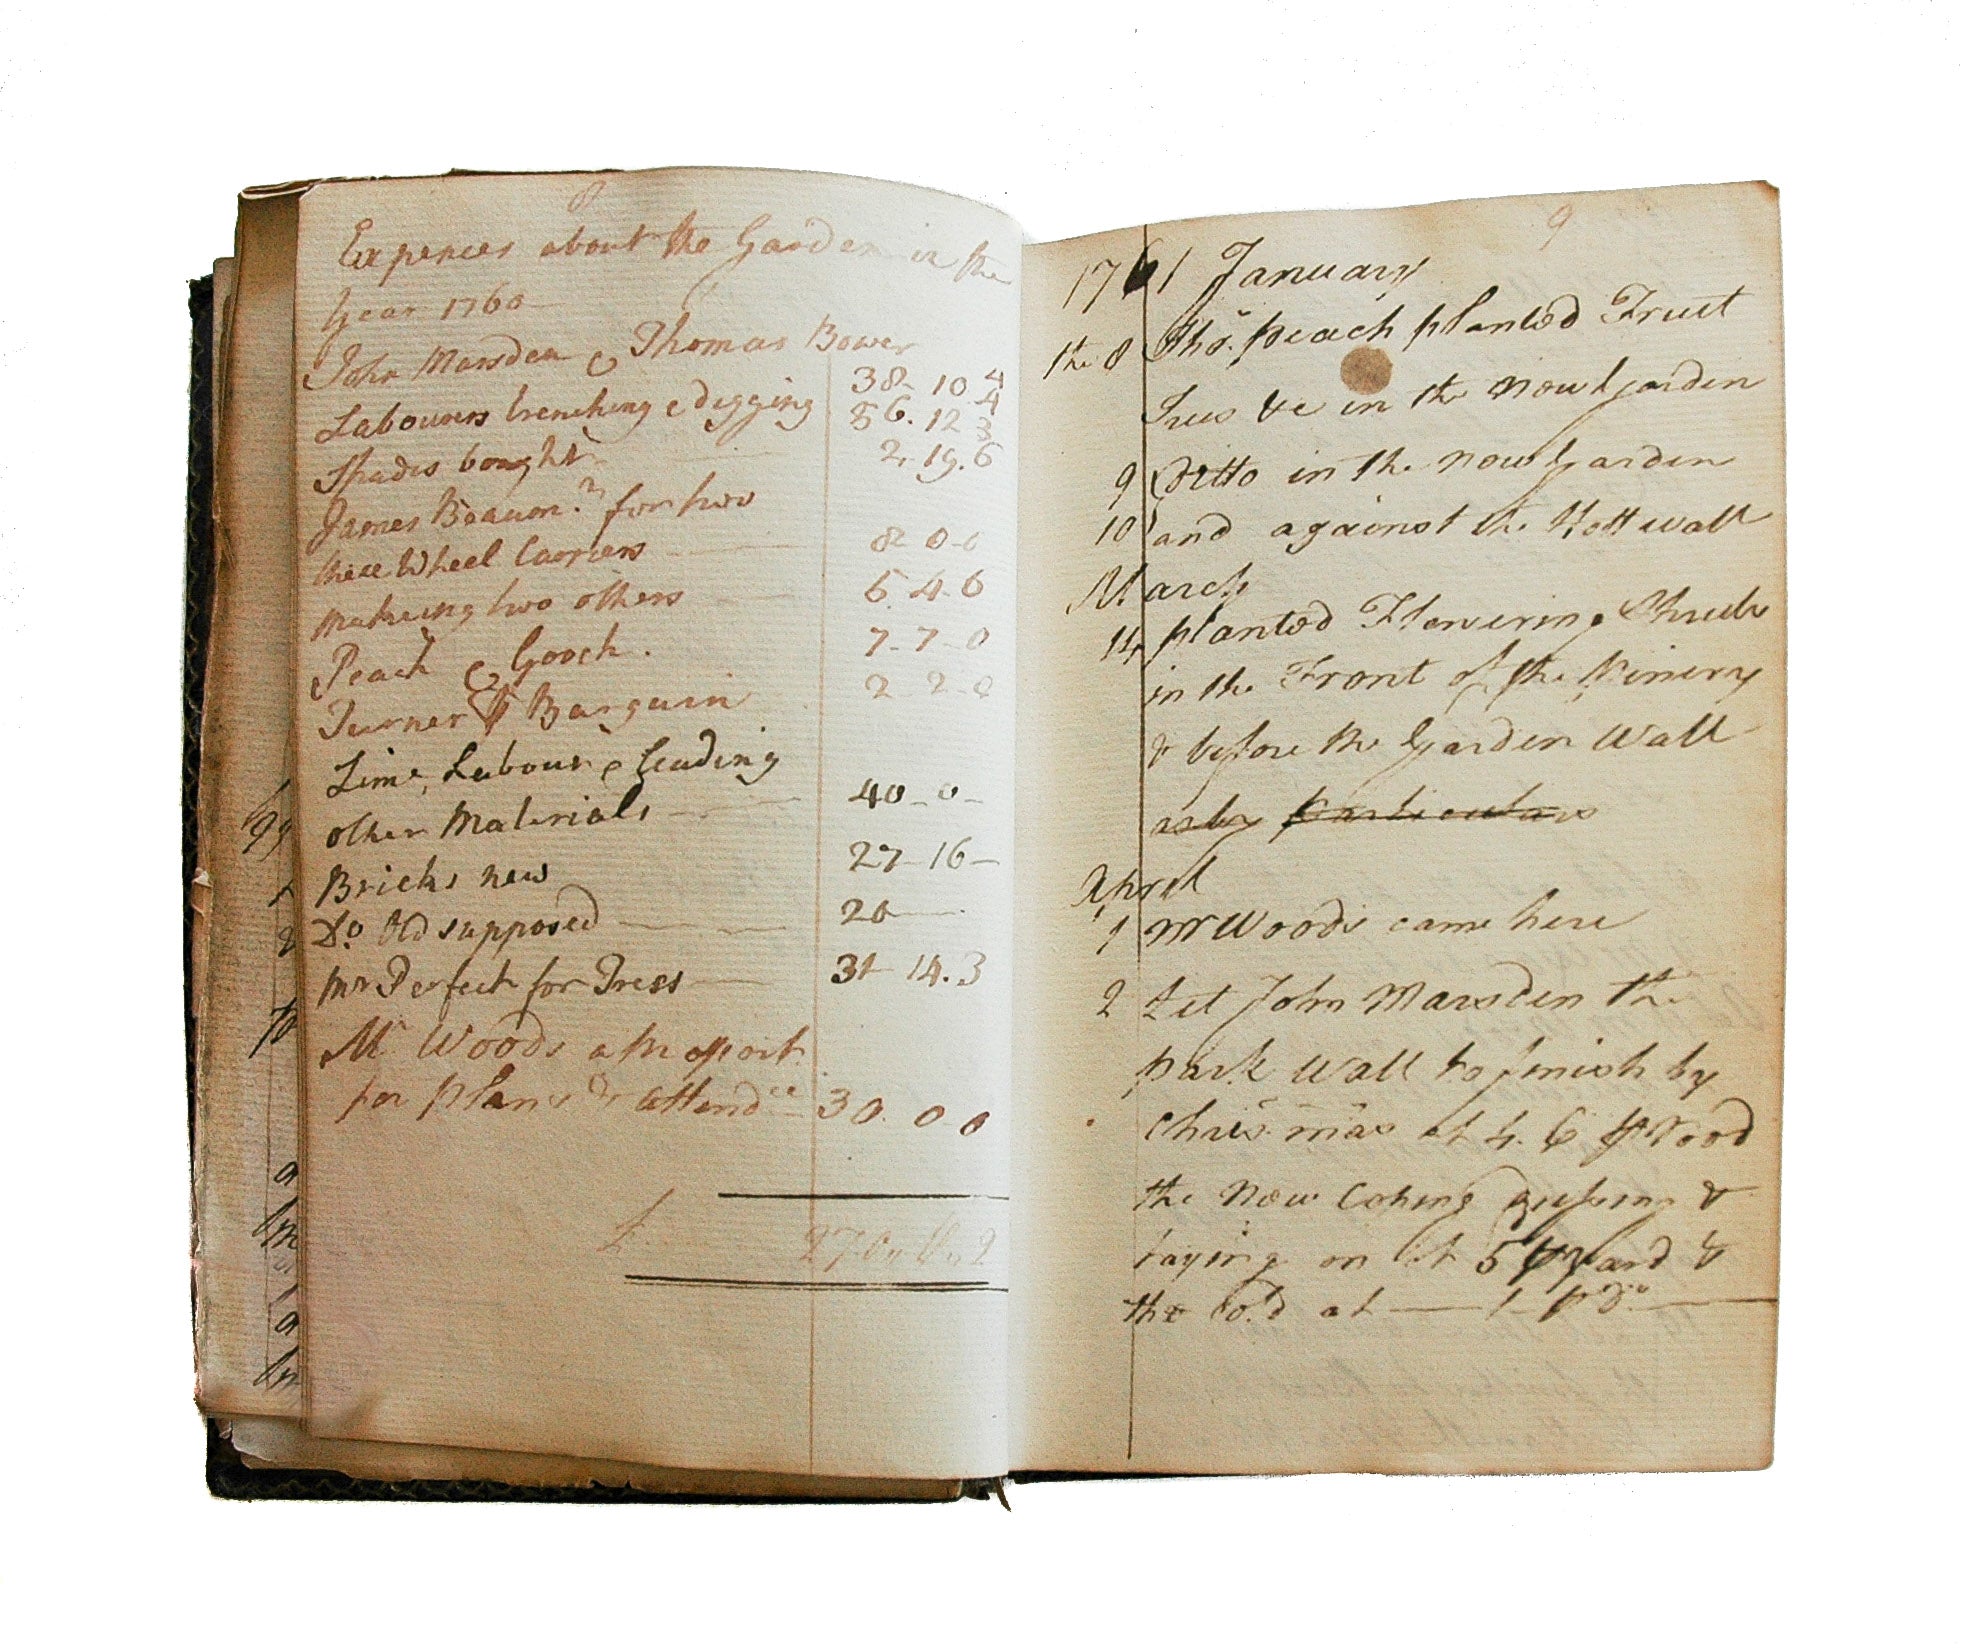 8
Expences about the Garden in the
Year 1760
John Marsden & Thomas Bower 38 - 10 4
Labourers trenching & digging 56. 12 3
Spades bought 2. 19. 6
James Beaumont for two
three Wheel Carriers 8 0 - 0
Makeing two others 5. 4. 6
Peach & Gooch. 7 - 7 - 0
Turner Bargain 2 - 2 - 0
Lime, Labour & leading
other Materials 40 - 0 -
Bricks new 27 - 16 -
Do. Old supposed 20
Mr Perfect for Trees 31 - 14. 3
Mr Woods
for Plans & attendce 30. 0 0
£
9
1761 January
the 8 Tho. Peach planted Fruit
Trees &c in the New Garden
9 Ditto in the New Garden
10 and against the Hott wall
March
planted Flowering Shrubs
in the Front of the Pinery
& before the Garden Wall
as by particulars
April
1 Mr Woods came here
2 Let John Marsden the
park Wall to finish by
Chrismas at 4. 6 ⅌ Rood
the New Coping &
laying on at 5 ⅌ Yard &
the old at 1 pr Do